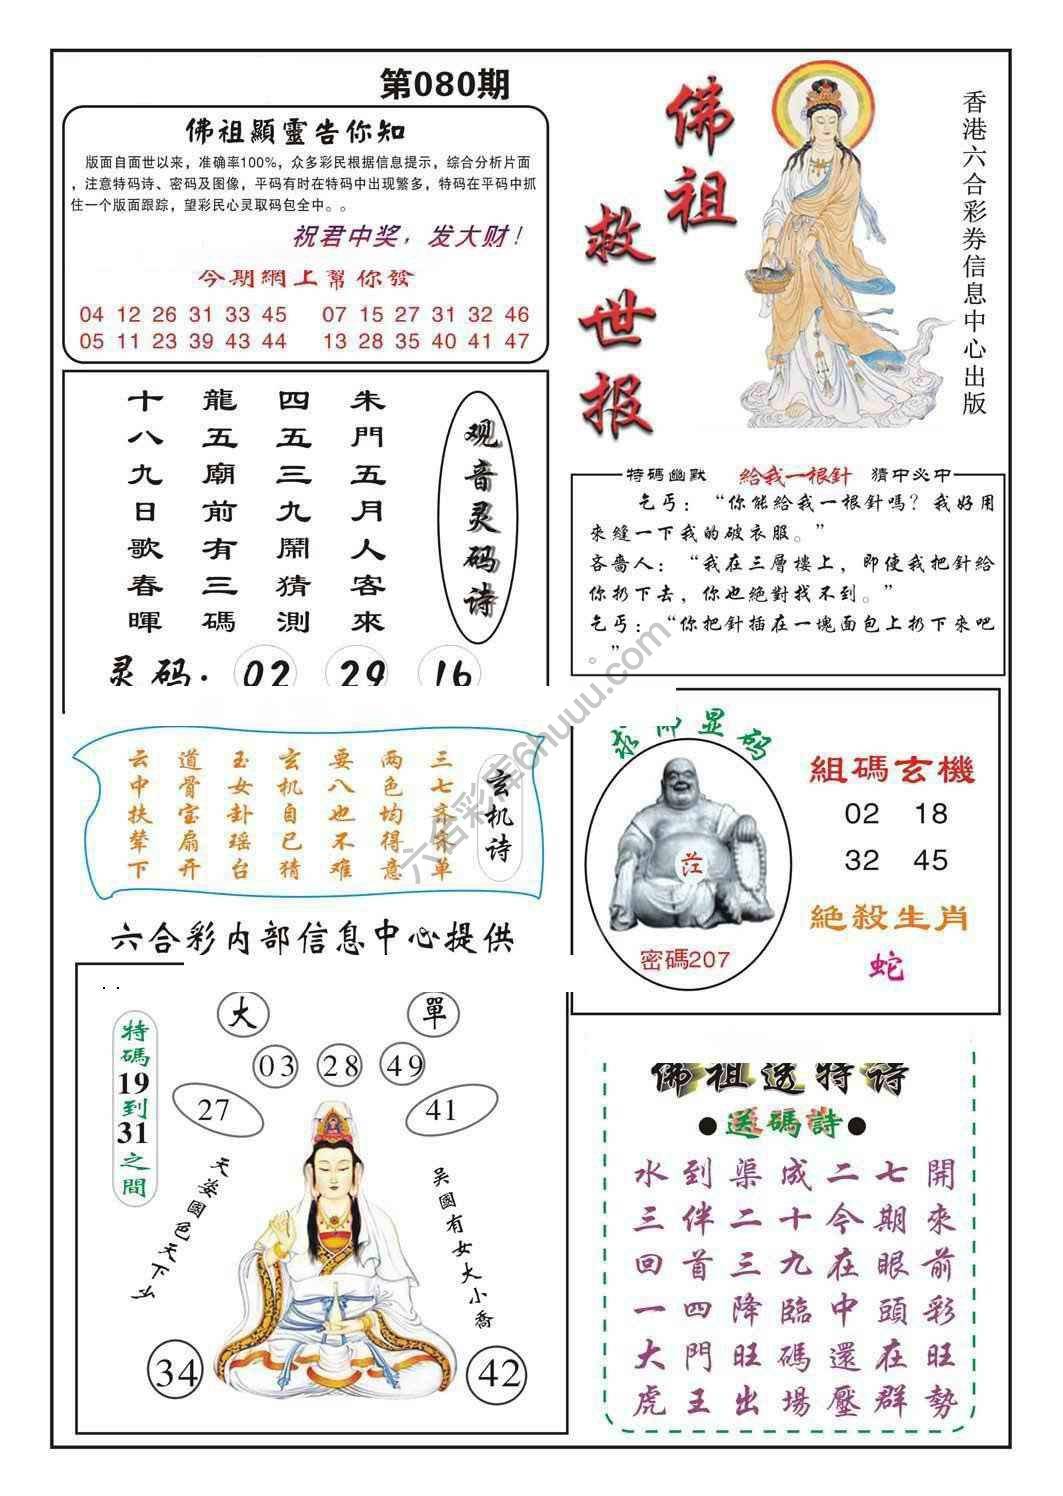 第080期
佛祖顯靈告你知
版面自面世以来，准确率100%，众多彩民根据信息提示，综合分析片面
，注意特码诗、密码及图像，平码有时在特码中出现繁多，特码在平码中抓
住一个版面跟踪，望彩民心灵取码包全中。。
祝君中奖，发大财！
今期網上幫你發
04 12 26 31 33 45 07 15 27 31 32 46
05 11 23 39 43 44 13 28 35 40 41 47
佛祖救世报
香港六合彩券信息中心出版
观音灵码诗
朱門五月人客來
四五三九開猜測
龍五廟前有三碼
十八九日歌春暉
灵码：02 29 16
特碼幽默 給我一根針 猜中必中
乞丐：“你能给我一根針嗎？我好用
來縫一下我的破衣服。”
吝嗇人：“我在三層樓上，即使我把針給
你扔下去，你也絕對找不到。”
乞丐：“你把針插在一塊面包上扔下來吧
。”
玄机诗
三七齐来单
两色均得意
要八也不难
玄机自己猜
玉女卦瑶台
道骨宝扇开
云中扶辇下
六合彩内部信息中心提供
显码
密碼207
組碼玄機
02 18
32 45
絕殺生肖
蛇
特碼19到31之間
大 單
03 28 49
27 41
天姿國色天下么
吴國有女大小喬
34 42
佛祖透特诗
●送碼詩●
水到渠成二七開
三伴二十今期來
回首三九在眼前
一四降臨中頭彩
大門旺碼還在旺
虎王出場壓群勢
六合彩库6huuu.com